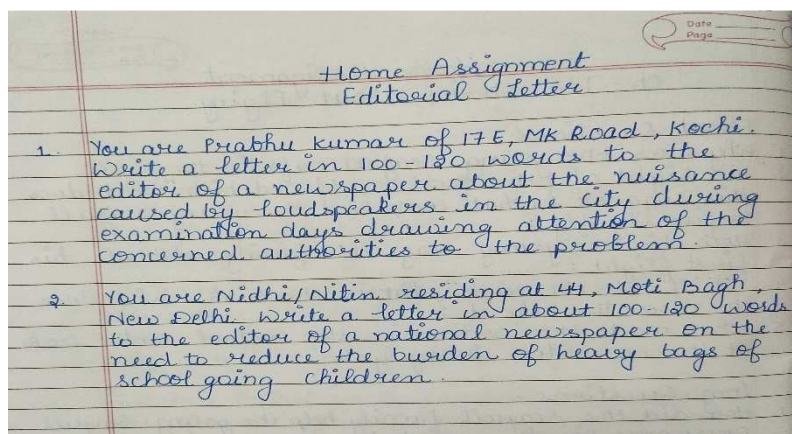 Date
Page
Home Assignment
Editorial Letter
1. You are Prabhu Kumar of 17E, MK Road, Kochi.
Write a letter in 100-120 words to the
editor of a newspaper about the nuisance
caused by loudspeakers in the city during
examination days drawing attention of the
concerned authorities to the problem.
2. You are Nidhi/Nitin residing at 44, Moti Bagh,
New Delhi. Write a letter in about 100-120 words
to the editor of a national newspaper on the
need to reduce the burden of heavy bags of
school going children.